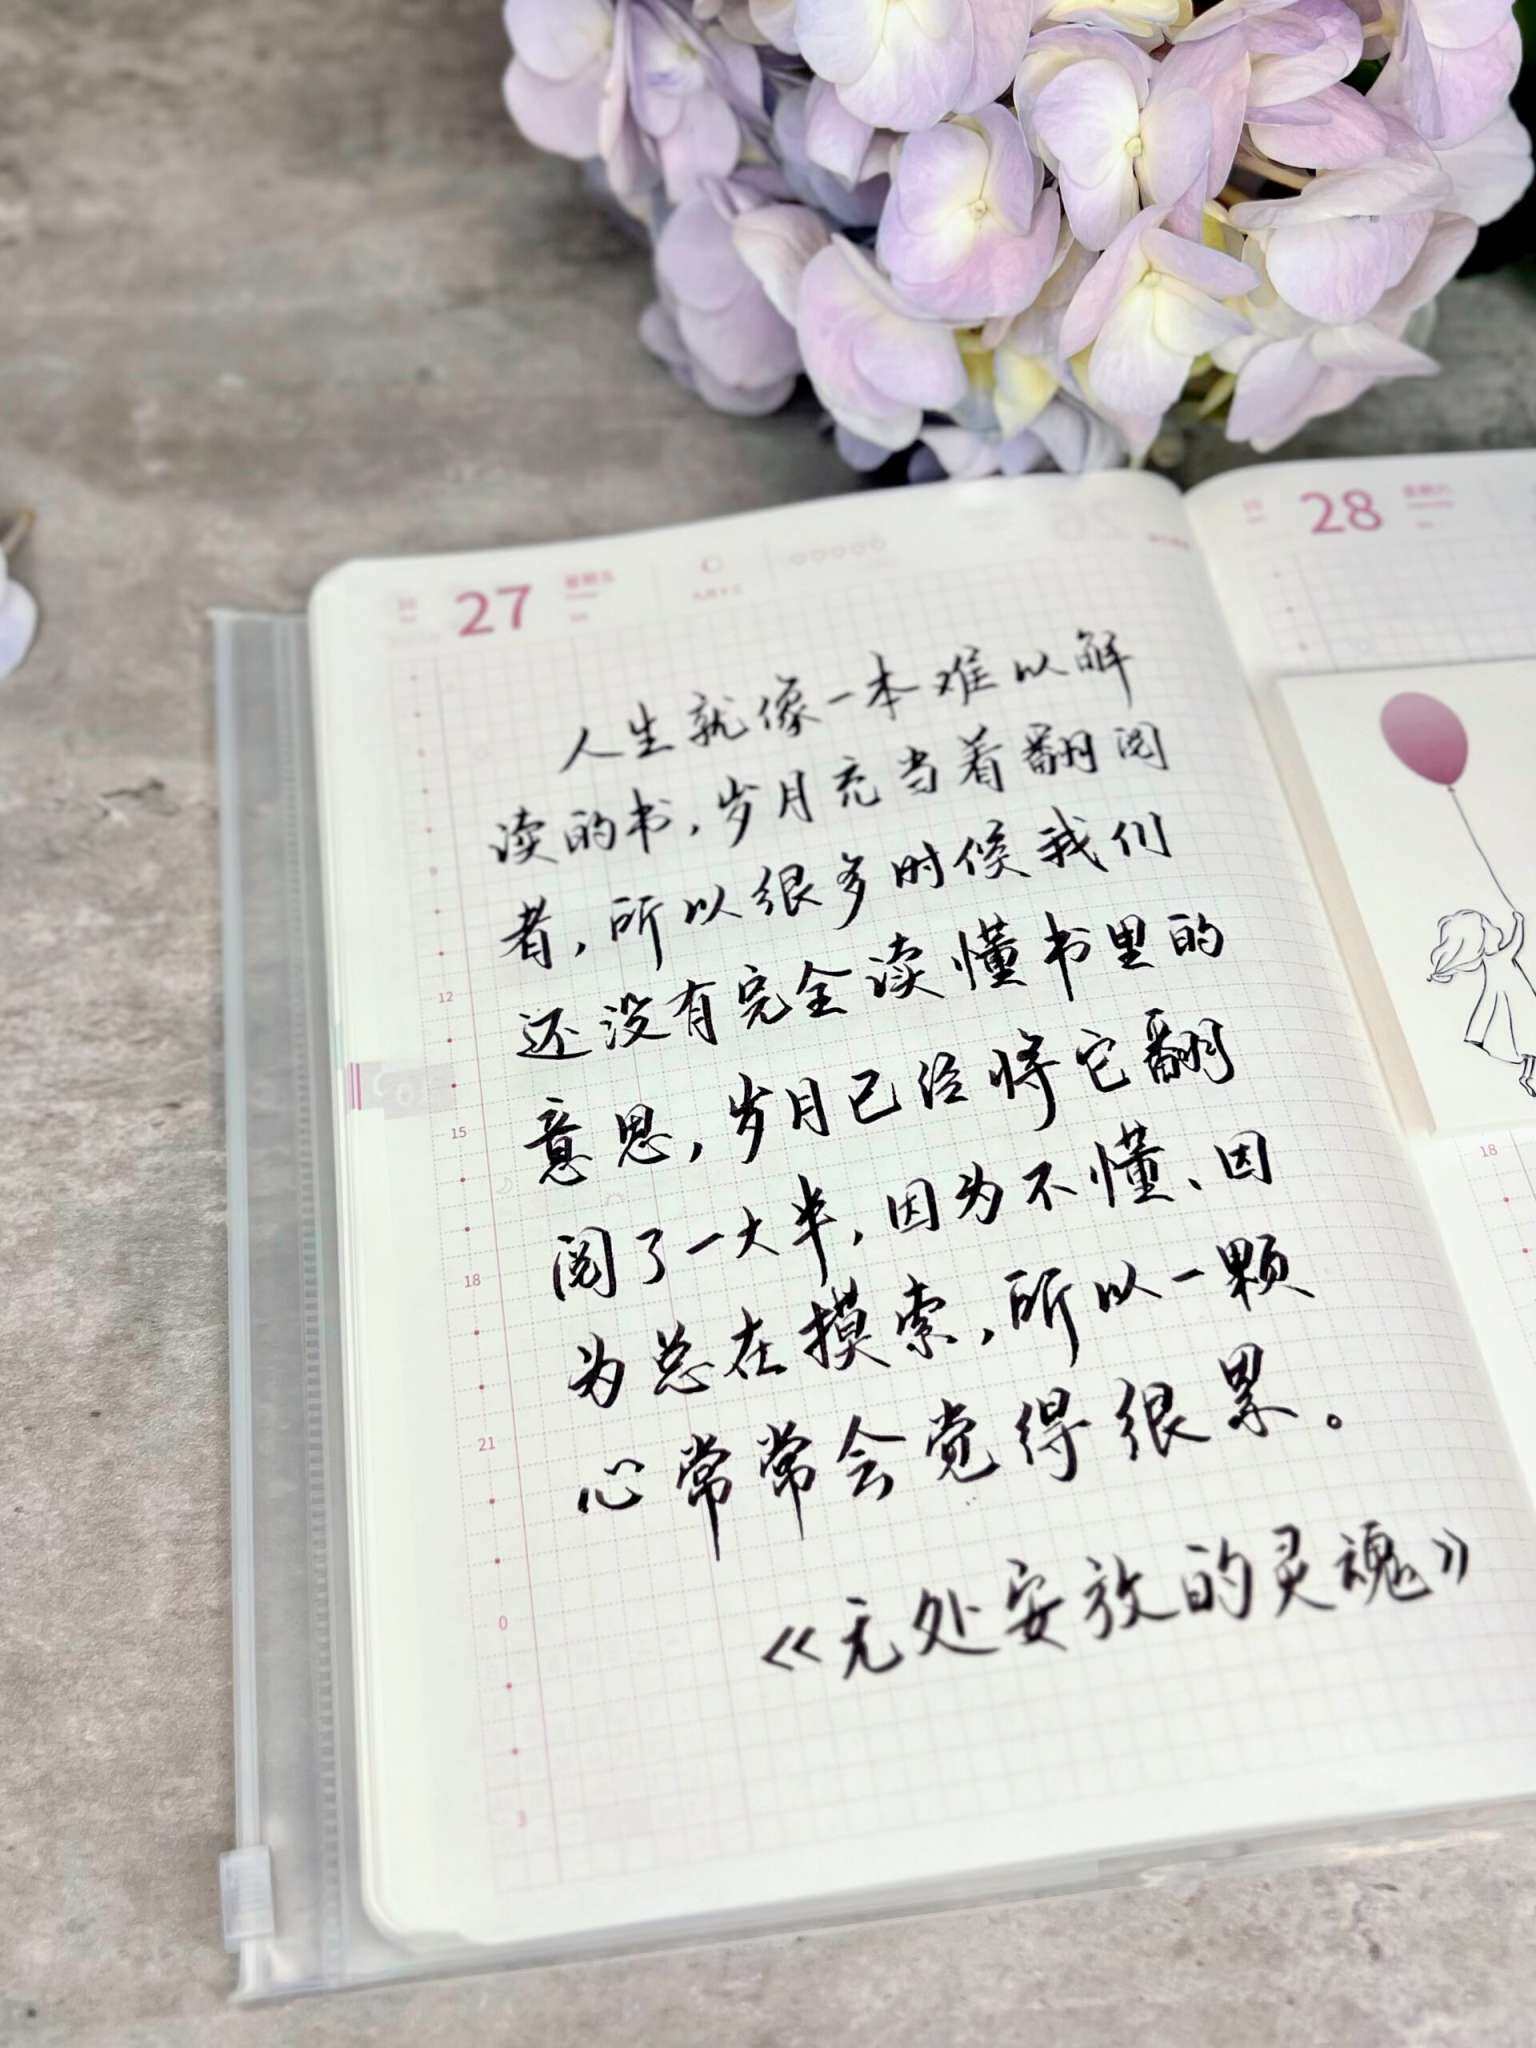 27 星期五
28 星期六
人生就像一本难以解
读的书，岁月充当着翻阅
者，所以很多时候我们
还没有完全读懂书里的
意思，岁月已经将它翻
阅了一大半，因为不懂、因
为总在摸索，所以一颗
心常常会觉得很累。
《无处安放的灵魂》
9
12
15
18
21
0
3
18